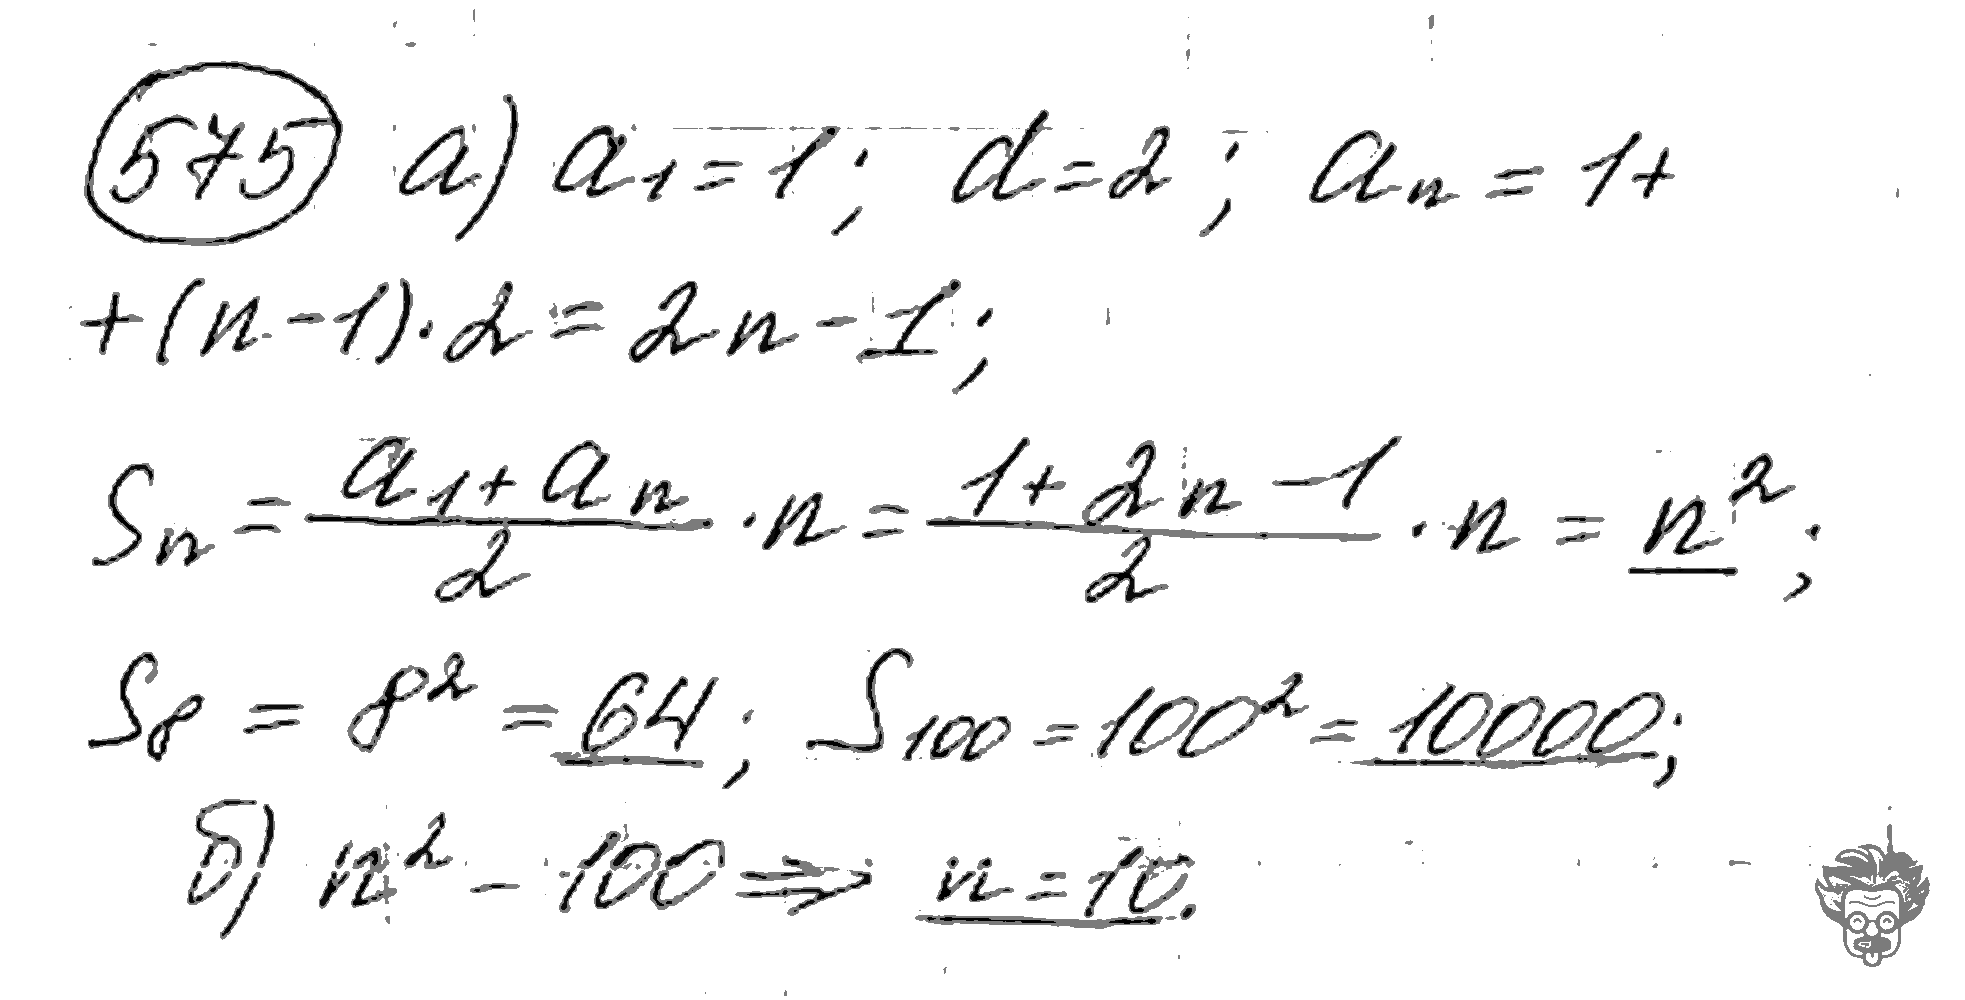 575 а) a₁ = 1; d = 2; aₙ = 1 +
+ (n - 1) · 2 = 2n - 1;
Sₙ = (a₁ + aₙ)/2 · n = (1 + 2n - 1)/2 · n = n²;
S₈ = 8² = 64; S₁₀₀ = 100² = 10000;
б) n² - 100 ⇒ n = 10.